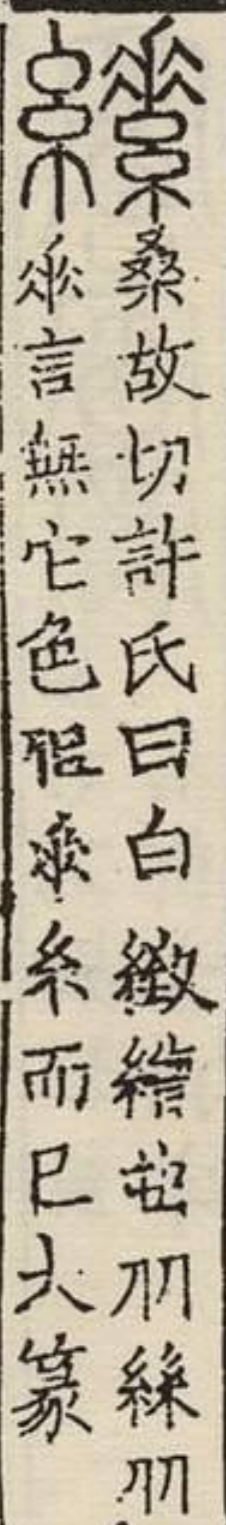 桑故切許氏曰白緻繒也从糸从
𠂹言無它色但𠂹糸而已大篆